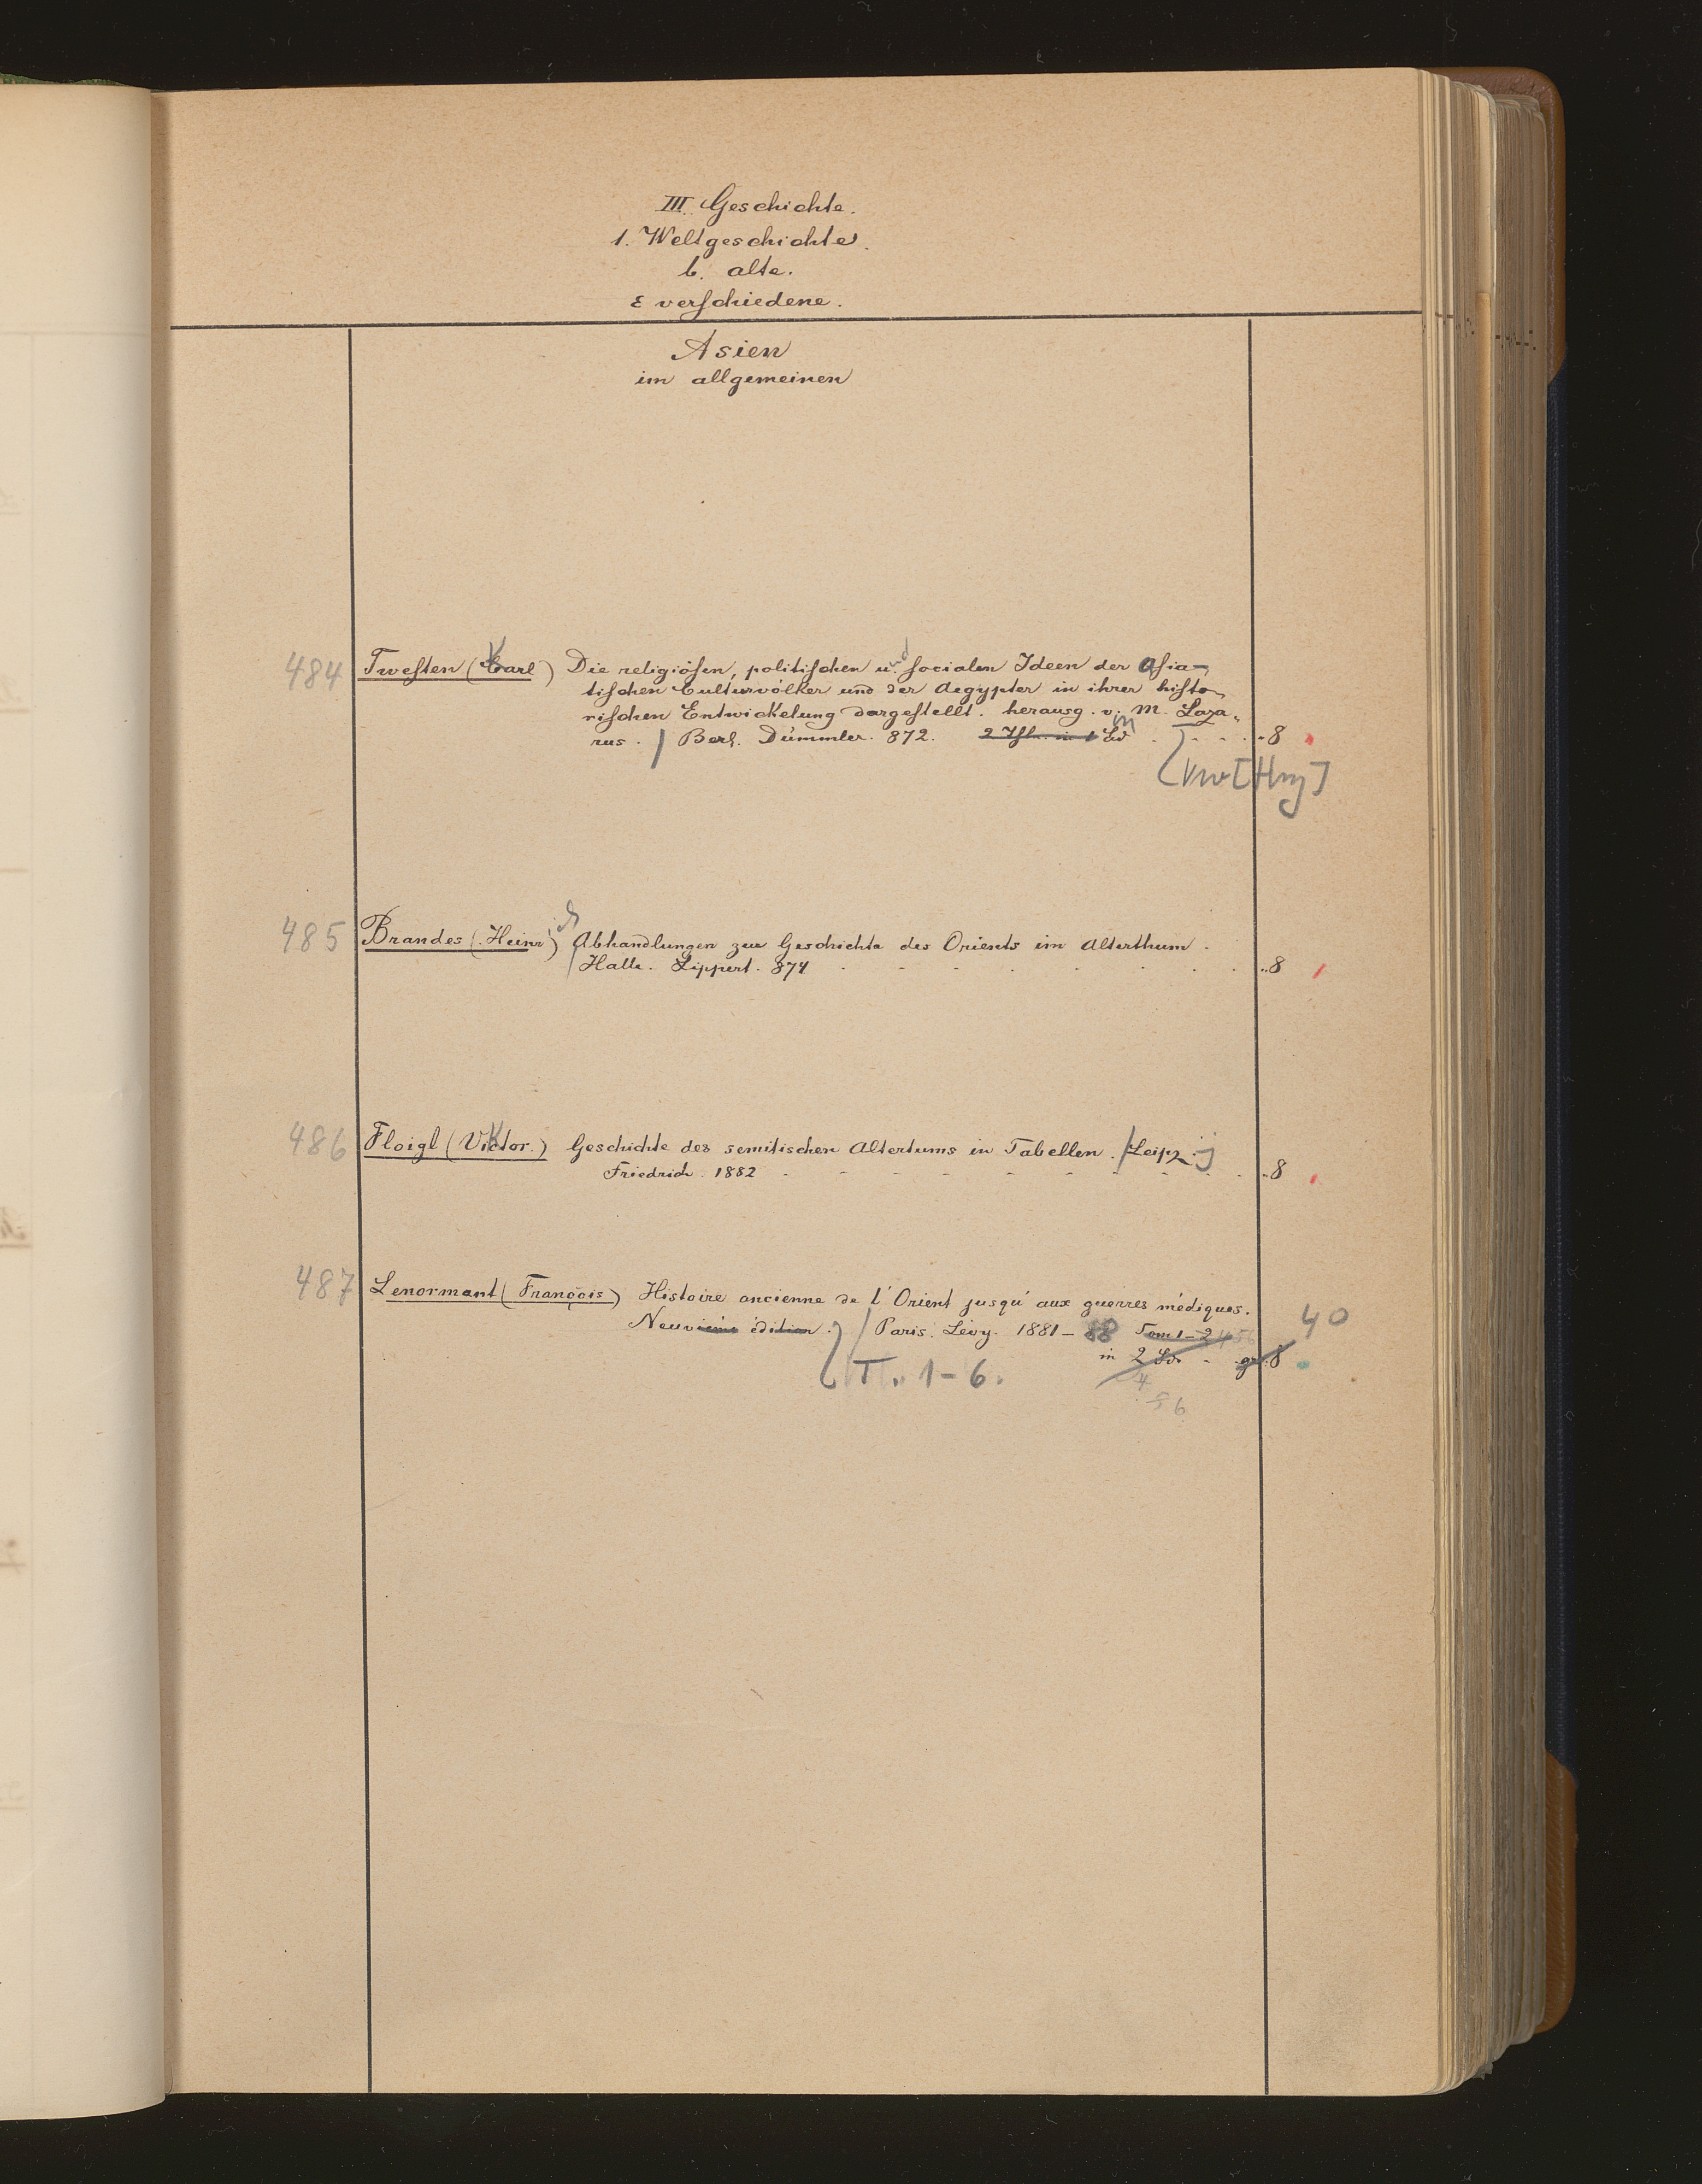 III. Geschichte.
1. Weltgeschichte.
b. alte.
ε verschiedene.
Asien
im allgemeinen
484 Twesten (Carl) Die religiösen, politischen u. socialen Ideen der Asia-
tischen Culturvölker und der Aegypter in ihrer histo-
rischen Entwickelung dargestellt. herausg. v. M. Laza-
rus. Berl. Dümmler. 872. 2 Thle. in 1 Bd 8
485 Brandes (Heinr) Abhandlungen zur Geschichte des Orients im Alterthum.
Halle. Lippert. 874 8
486 Floigl (Victor.) Geschichte des semitischen Altertums in Tabellen. Leipz.
Friedrich. 1882 8
487 Lenormant (François) Histoire ancienne de l'Orient jusqu'aux guerres médiques. 40
Neuvième édition. Paris. Lévy. 1881-88 Tom 1-2 4 56
in 2 Bd. gr. 8
T. 1-6.
4
5 6